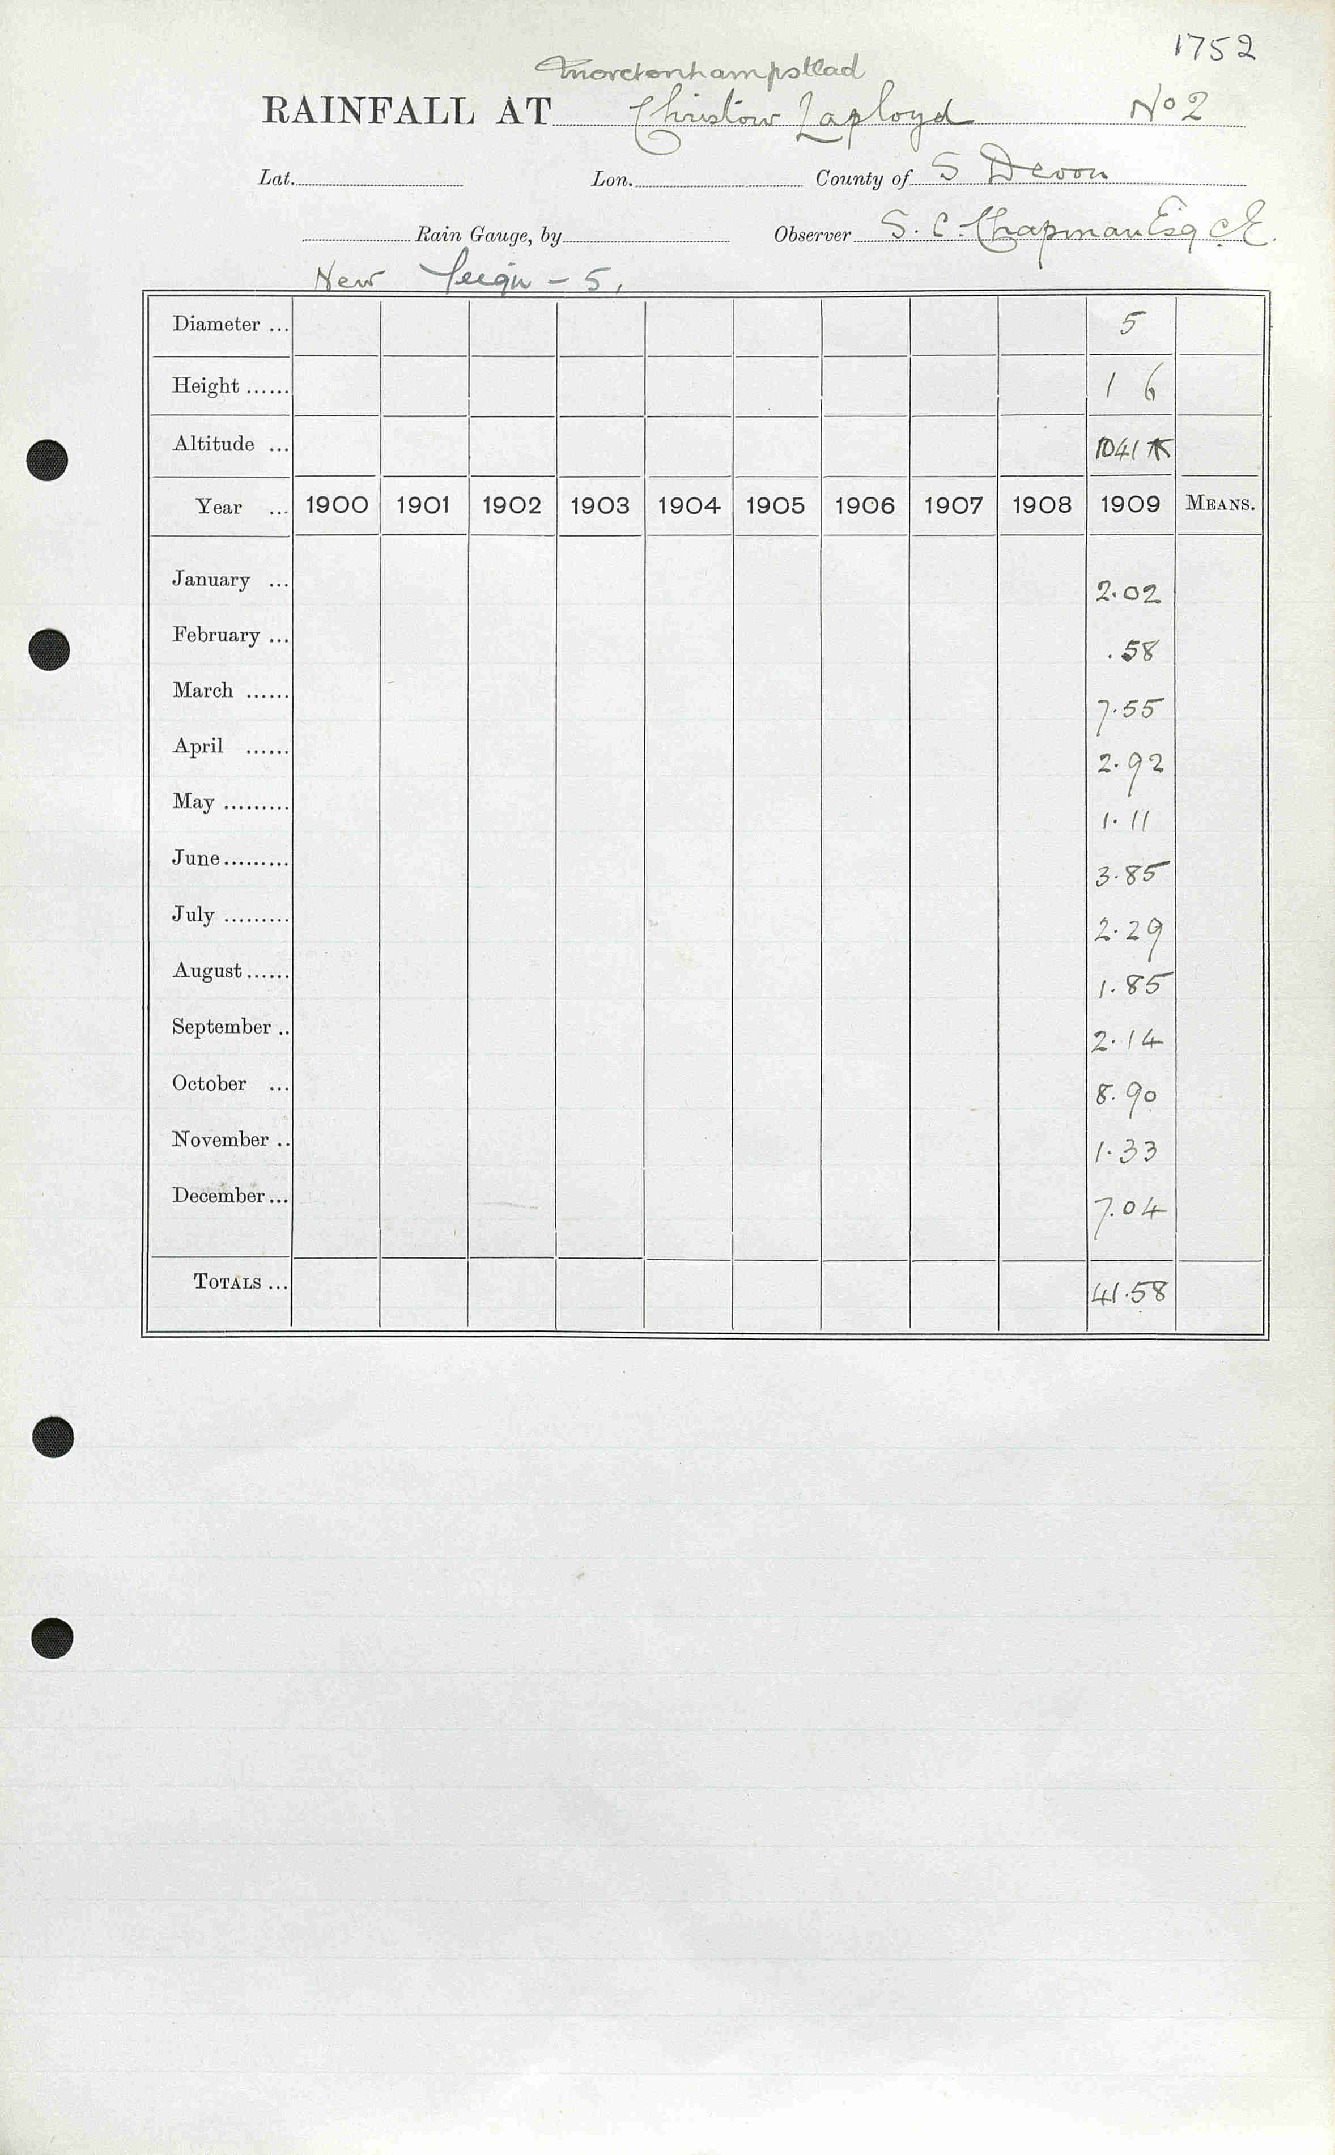 1752
Moretonhampstead
RAINFALL AT Christow Laployd No 2
Lat. Lon. County of S Devon
Rain Gauge, by Observer S. C. Chapman Esq C.E.
New Teign - 5.
Diameter ... 5
Height ...... 1 6
Altitude ... 1041
Year ... 1900 1901 1902 1903 1904 1905 1906 1907 1908 1909 MEANS.
January ... 2.02
February ... .58
March ...... 7.55
April ...... 2.92
May ......... 1.11
June ......... 3.85
July ......... 2.29
August ...... 1.85
September .. 2.14
October ... 8.90
November .. 1.33
December ... 7.04
TOTALS ... 41.58